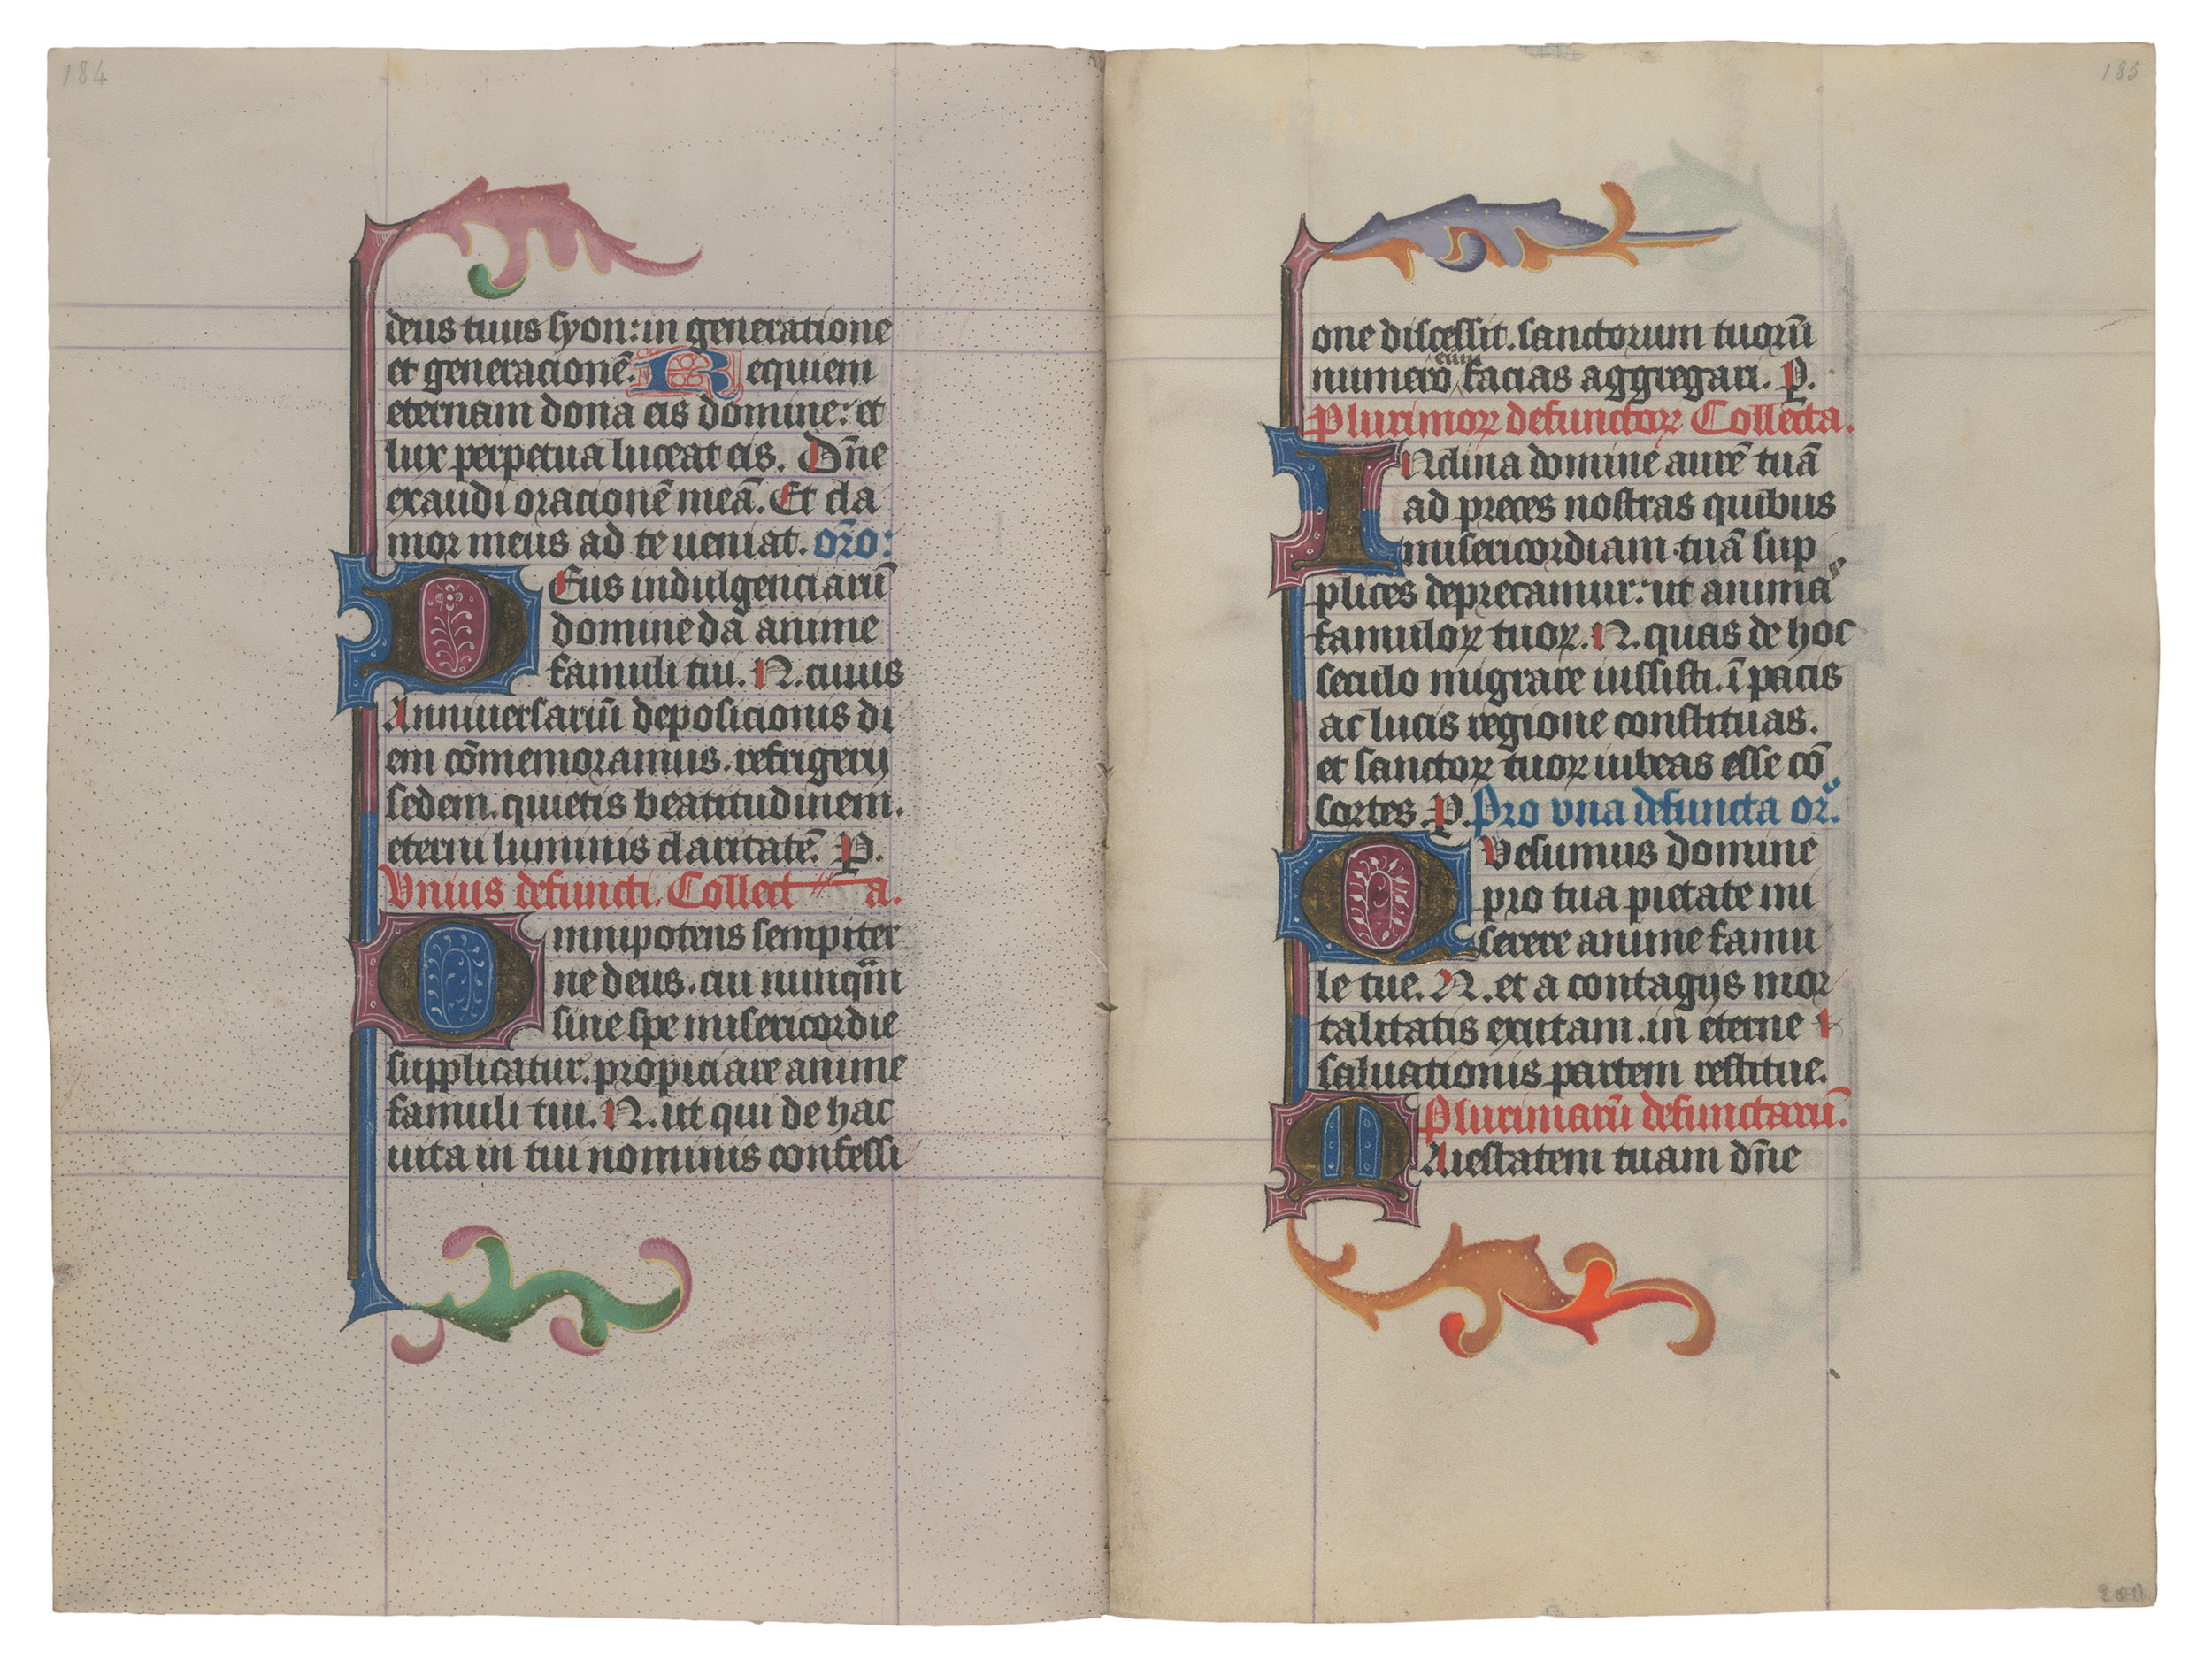 184
deus tuus syon: in generatione
et generacionē. Requiem
eternam dona eis domine: et
lux perpetua luceat eis. Dn̄e
exaudi oracionē meā. Et cla
mor meus ad te ueniat. or̄o:
DEus indulgenciarū
domine da anime
famuli tui. N. cuius
Anniuersariū deposicionis di
em cōmemoramus. refrigerij
sedem. quietis beatitudinem.
eterni luminis claritatē. P.
Vnius defuncti. Collect a.
Omnipotens sempiter
ne deus. cui nunqm̄
sine spe misericordie
supplicatur. propiciare anime
famuli tui. N. ut qui de hac
uita in tui nominis confessi
185
one discessit. sanctorum tuorū
numero eum facias aggregari. P.
Plurimoꝝ defunctoꝝ Collecta.
INclina domine aurē tuā
ad preces nostras quibus
misericordiam tuā sup
plices deprecamur: ut animas
famuloꝝ tuoꝝ. N. quas de hoc
seculo migrare iussisti. ī pacis
ac lucis regione constituas.
et sanctoꝝ tuoꝝ iubeas esse cō
sortes. P. Pro vna defuncta or.
QVesumus domine
pro tua pietate mi
serere anime famu
le tue. N. et a contagijs mor
talitatis exutam. in eterne
saluationis partem restitue.
Plurimarū defunctarū.
MAiestatem tuam dn̄e